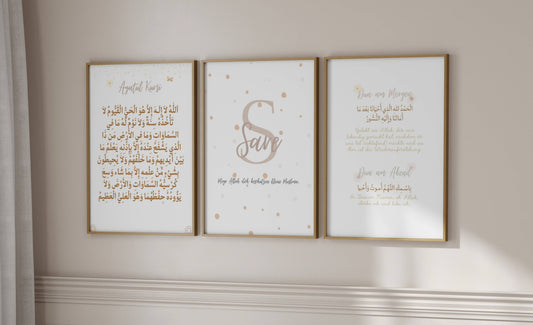 Ayatul Kursi
اَللّٰهُ لَا إِلٰهَ إِلَّا هُوَ الْحَيُّ الْقَيُّومُ لَا
تَأْخُذُهُ سِنَةٌ وَلَا نَوْمٌ لَهُ مَا فِي
السَّمَاوَاتِ وَمَا فِي الْأَرْضِ مَنْ ذَا
الَّذِي يَشْفَعُ عِنْدَهُ إِلَّا بِإِذْنِهِ يَعْلَمُ مَا
بَيْنَ أَيْدِيهِمْ وَمَا خَلْفَهُمْ وَلَا يُحِيطُونَ
بِشَيْءٍ مِنْ عِلْمِهِ إِلَّا بِمَا شَاءَ وَسِعَ
كُرْسِيُّهُ السَّمَاوَاتِ وَالْأَرْضَ وَلَا
يَؤُودُهُ حِفْظُهُمَا وَهُوَ الْعَلِيُّ الْعَظِيمُ
S
Möge Allah dich beschützen kleine Muslima.
Dua am Morgen
الْحَمْدُ لِلَّهِ الَّذِي أَحْيَانَا بَعْدَ مَا
أَمَاتَنَا وَإِلَيْهِ النُّشُورُ
Dua am Abend
بِاسْمِكَ اللَّهُمَّ أَمُوتُ وَأَحْيَا